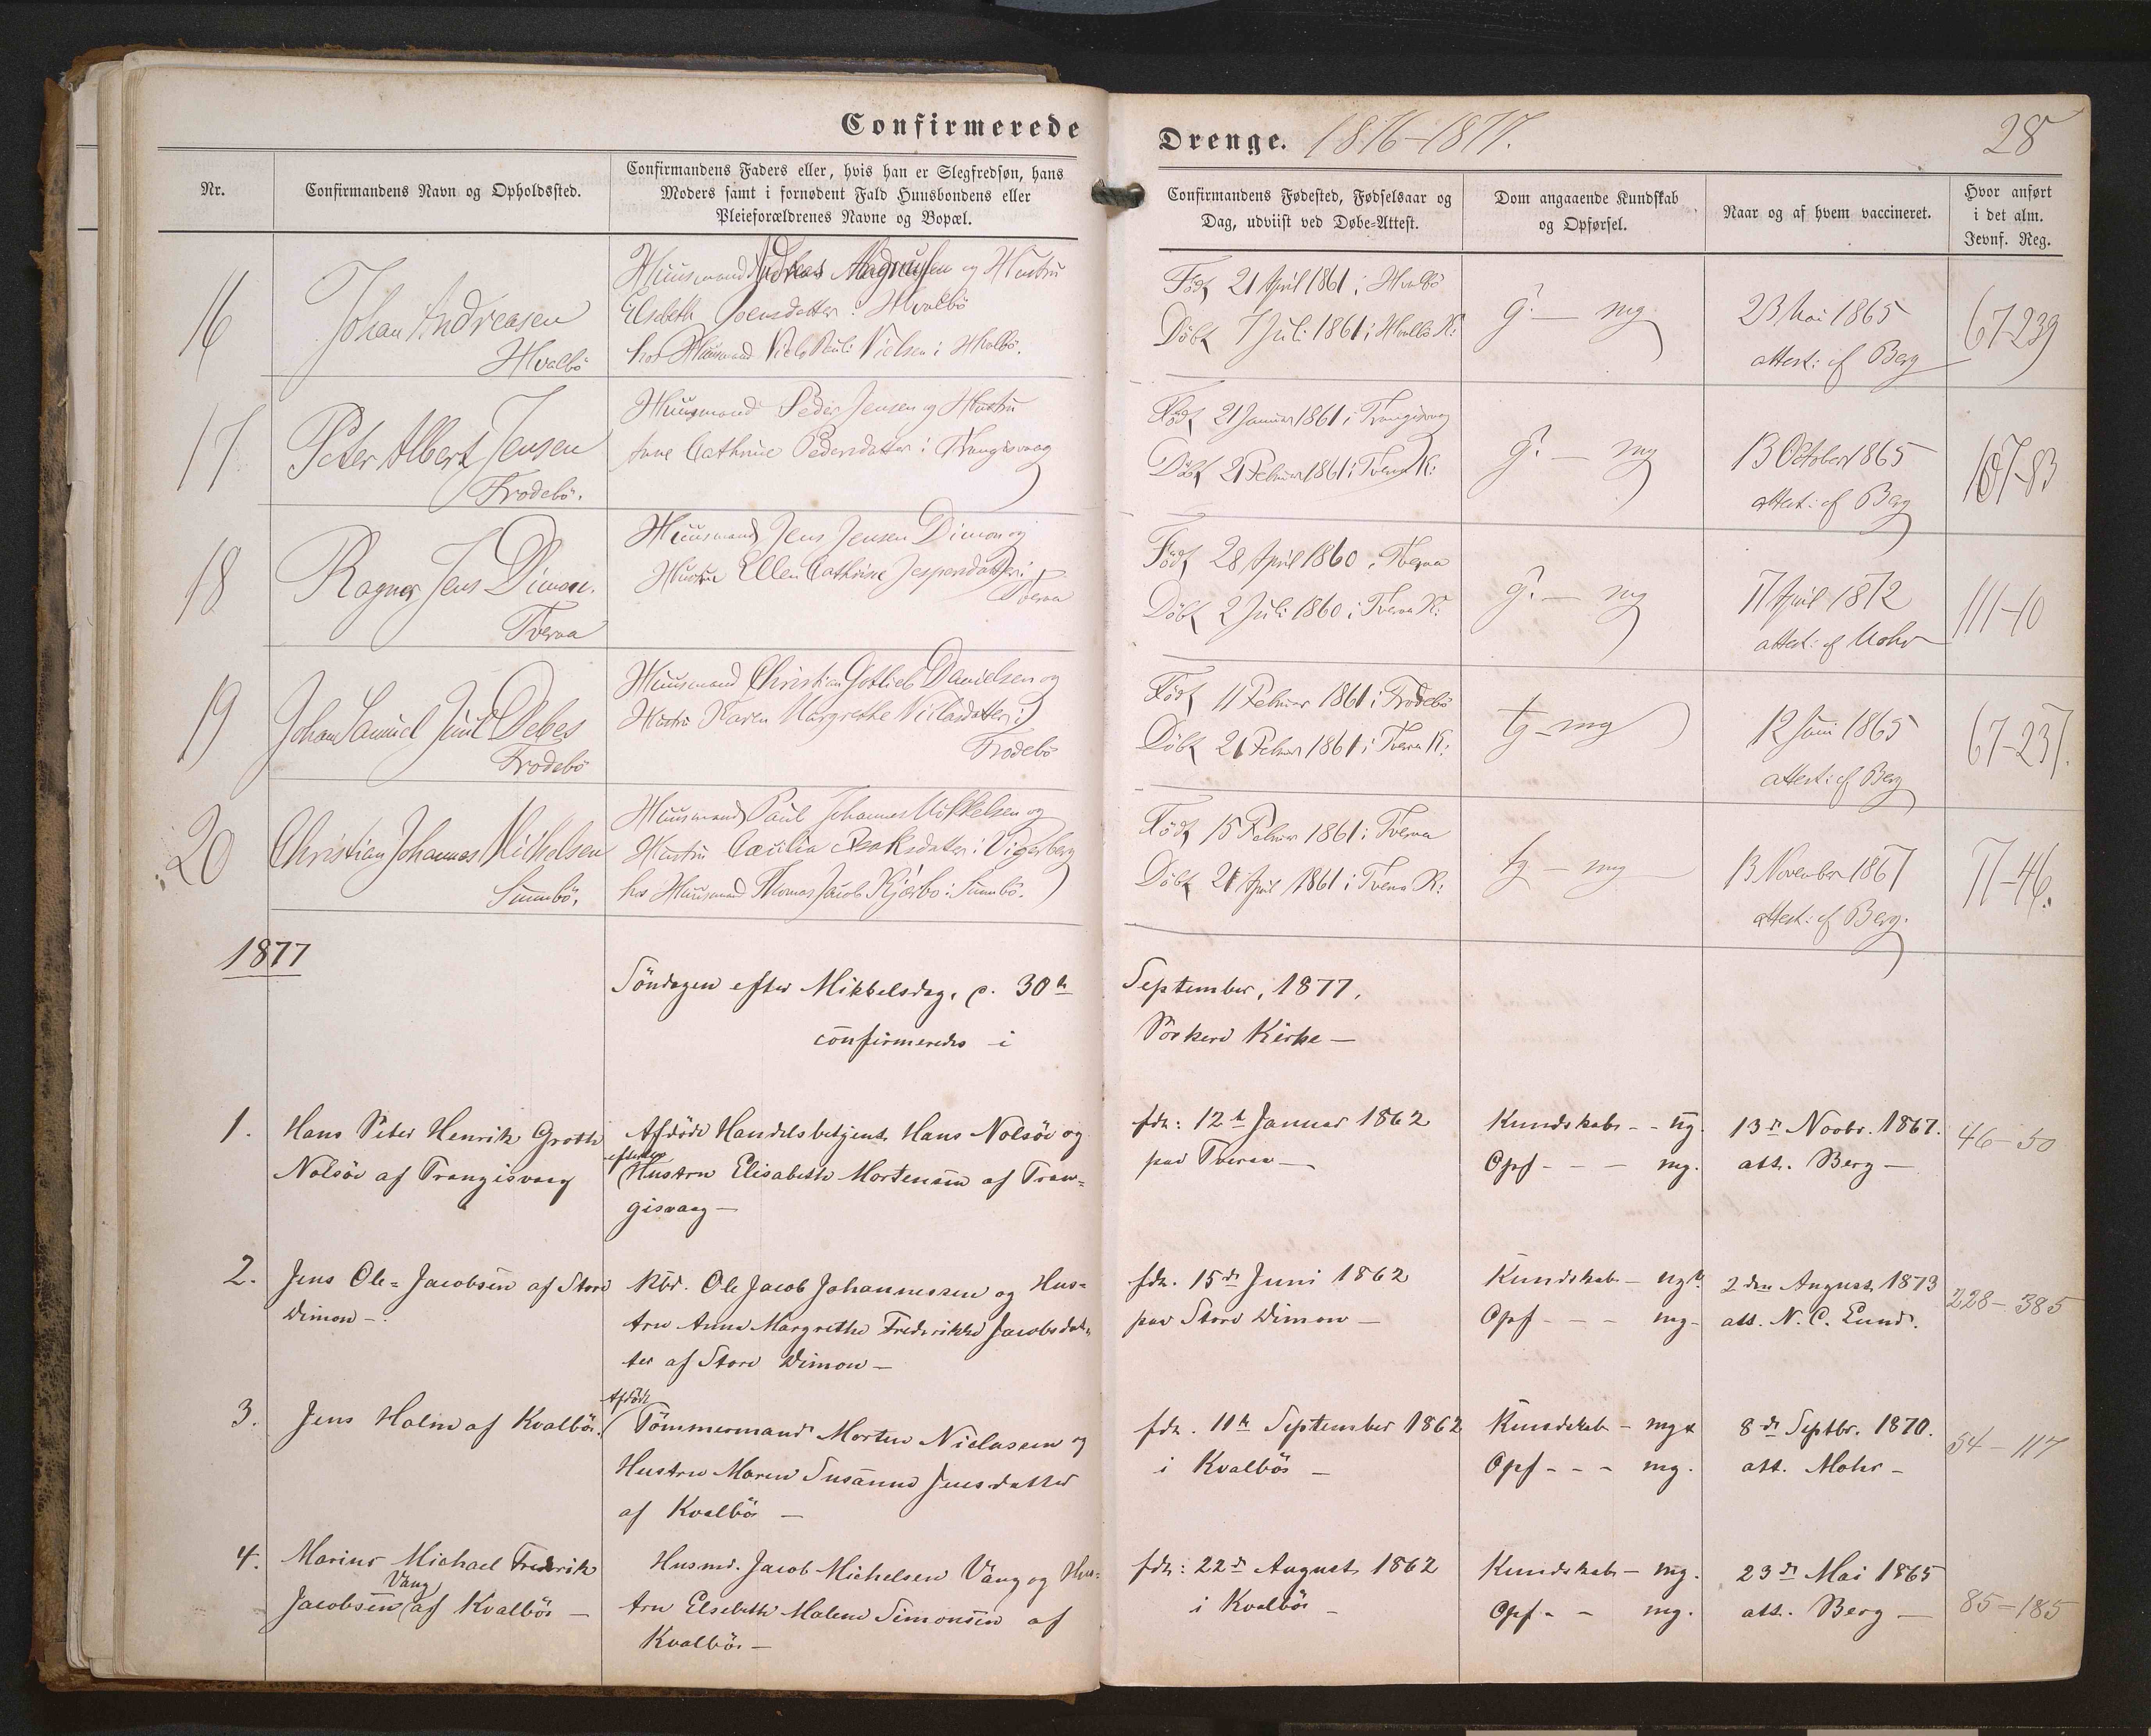 Confirmerede
Drenge. 1876-1877.
28
Nr.
Confirmandens Navn og Opholdssted.
Confirmandens Faders eller, hvis han er Slegfredsøn, hans
Moders samt i fornødent Fald Huusbondens eller
Pleieforældrenes Navne og Bopæl.
Confirmandens Fødested, Fødselsaar og
Dag, udviist ved Døbe-Attest.
Dom angaaende Kundskab
og Opførsel.
Naar og af hvem vaccineret.
Hvor anført
i det alm.
Jevnf. Reg.
16
Johan Andreasen
Hvalbö
Huusmand Andreas Magnussen og Hustru
Elsebeth Joensdatter i Hvalbö
hos Huusmand Niels Pauli Nielsen i Hvalbö.
Födt 21 April 1861 i Hvalbö
Döbt 7 Juli 1861 i Hvalbö K:
g? — mg
23 Mai 1865
attest: af Berg
67-239
17
Peter Albert Jensen
Frodebö.
Huusmand Peder Jensen og Hustru
Anne Cathrine Pedersdatter i Trangisvaag
Födt 21 Januar 1861 i Trangisvaag
Döbt 21 Februar 1861 i Tveraa K:
g? — mg
13 October 1865
attest: af Berg
167-83
18
Ragner Jens Dimon.
Tveraa
Huusmand Jens Jensen Dimon og
Hustru Ellen Cathrine Jespersdatter i
Tveraa
Födt 28 April 1860 i Tveraa
Döbt 2 Juli 1860 i Tveraa K:
g? — mg
17 April 1872
attest: af Mohr
111-10
19
Johan Samuel Juul Debes
Frodebö
Huusmand Christian Gotlieb Danielsen og
Hustru Karen Margrethe Niclasdatter i
Frodebö
Födt 11 Februar 1861 i Frodebö
Döbt 21 Februar 1861 i Tveraa K:
tg — mg
12 Juni 1865
attest: af Berg
67-237.
20
Christian Johannes Michelsen
Sumbö.
Huusmand Paul Johannes Mikkelsen og
Hustru Cæcilia Isaksdatter i Vigerberg
hos Huusmand Thomas Jacob Kjærbo i Sumbö.
Födt 15 Februar 1861 i Tveraa
Döbt 21 April 1861 i Tveraa K:
tg — mg
13 November 1867
attest: af Berg.
77-46.
1877
Söndagen efter Mikkelsdag, d. 30te
September, 1877,
confirmeredes i
Pörkere Kirke —
1.
Hans Peter Henrik Groth
Nolsöe af Trangisvaag
Afdöde Handelsbetjent Hans Nolsöe og
efterlev
Hustru Elisabeth Mortensen af Tran=
gisvaag —
fdt: 12te Januar 1862
paa Tveraa —
Kundskab - - ug.
Opf - - - mg.
13de Novbr. 1867.
att. Berg —
46-50
2.
Jens Ole=Jacobsen af Store
Dimon —.
Kbd. Ole Jacob Johannessen og Hus=
tru Anna Margrethe Frederikke Jacobsdat=
ter af Store Dimon —
fdt. 15de Juni 1862
paa Store Dimon —
Kundskab - ug÷.
Opf - - - mg -
2den August 1873
att. N. C. Lund.
228-385
3.
Jens Holm af Kvalböe.
Afdöde
Tömmermand Morten Niclasen og
Hustru Maren Susanne Jensdatter
af Kvalböe —
fdt. 11te September 1862
i Kvalböe —
Kundskab - mg+
Opf - - - mg.
8de Septbr. 1870.
att. Mohr -
54-117
4.
Marius Michael Frederik
Vang
Jacobsen af Kvalböe —
Husmd. Jacob Michelsen Vang og Hus=
tru Elsebeth Malene Simonsen af
Kvalböe —
fdt: 22de August 1862
i Kvalböe —
Kundskab - mg.
Opf - - mg.
23de Mai 1865
att. Berg —
85-185